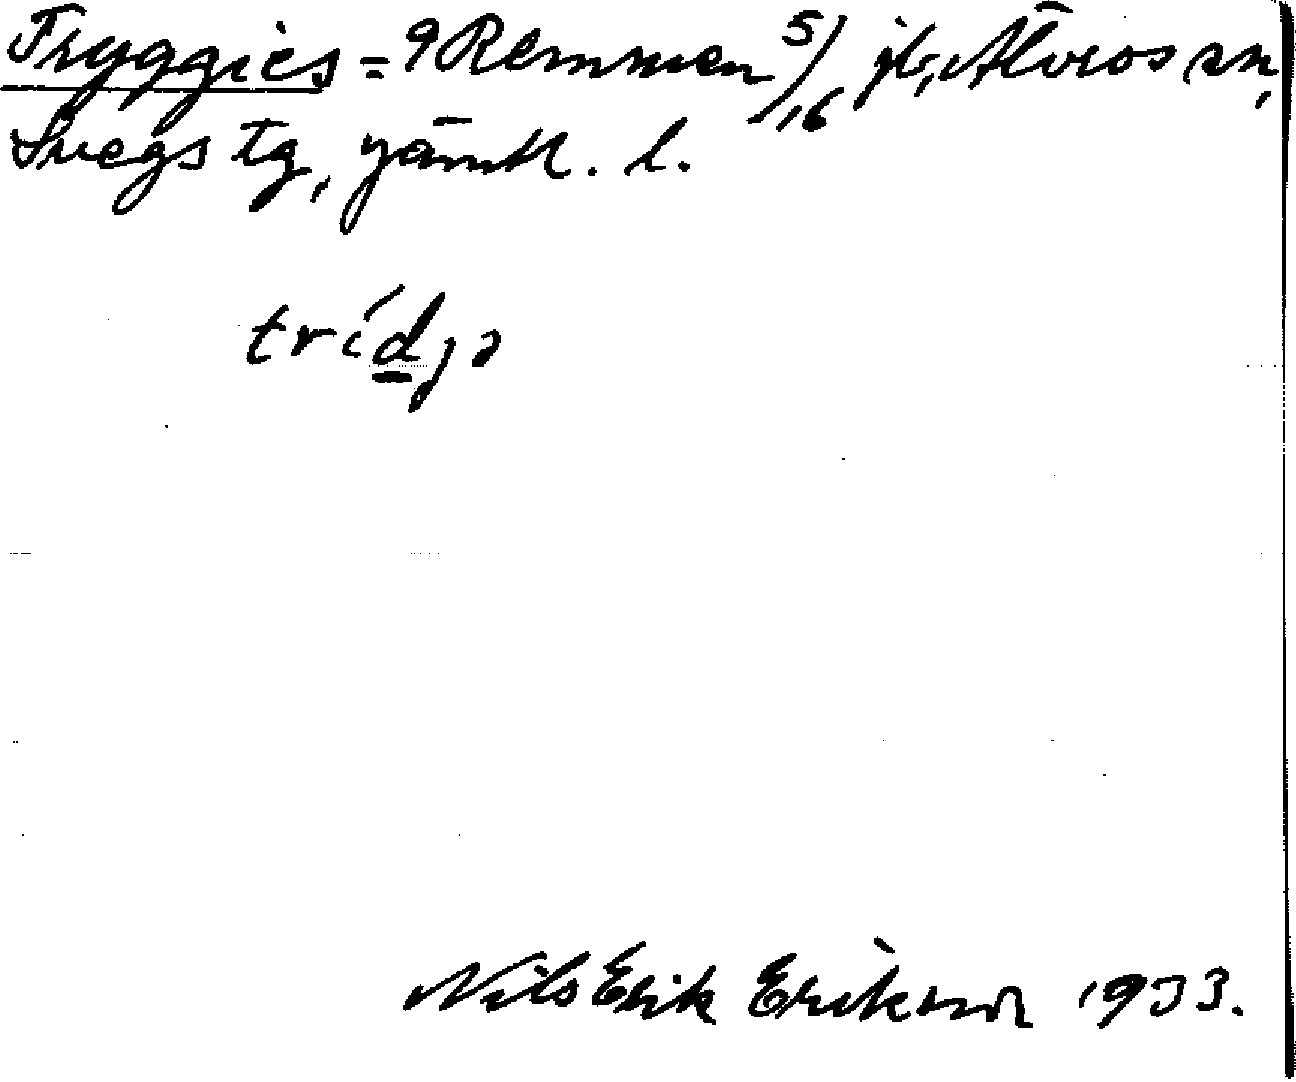 Tryggies = 9 Remmen 5/16 jb, Älvros sn,
Svegs tg, Jämtl. l.
trídjə
Nils Erik Erikson 1933.